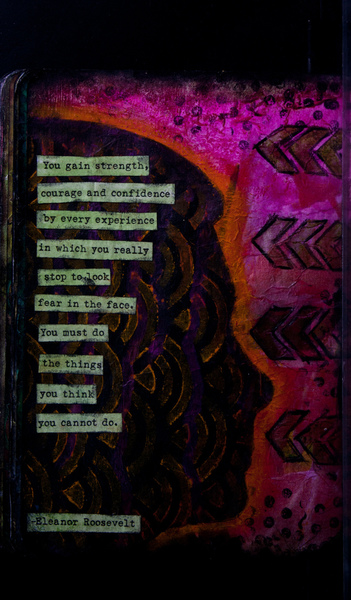 You gain strength,
courage and confidence
by every experience
in which you really
stop to look
fear in the face.
You must do
the things
you think
you cannot do.
-Eleanor Roosevelt